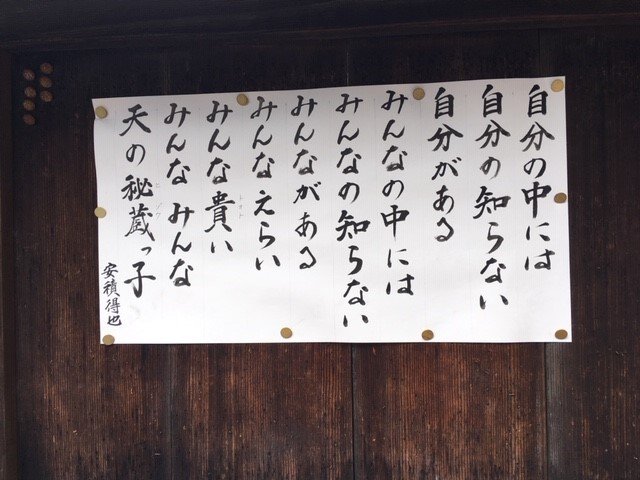 自分の中には
自分の知らない
自分がある
みんなの中には
みんなの知らない
みんながある
みんなえらい
みんな貴い
トオト
みんなみんな
天の秘蔵っ子
ヒゾウ
安積得也